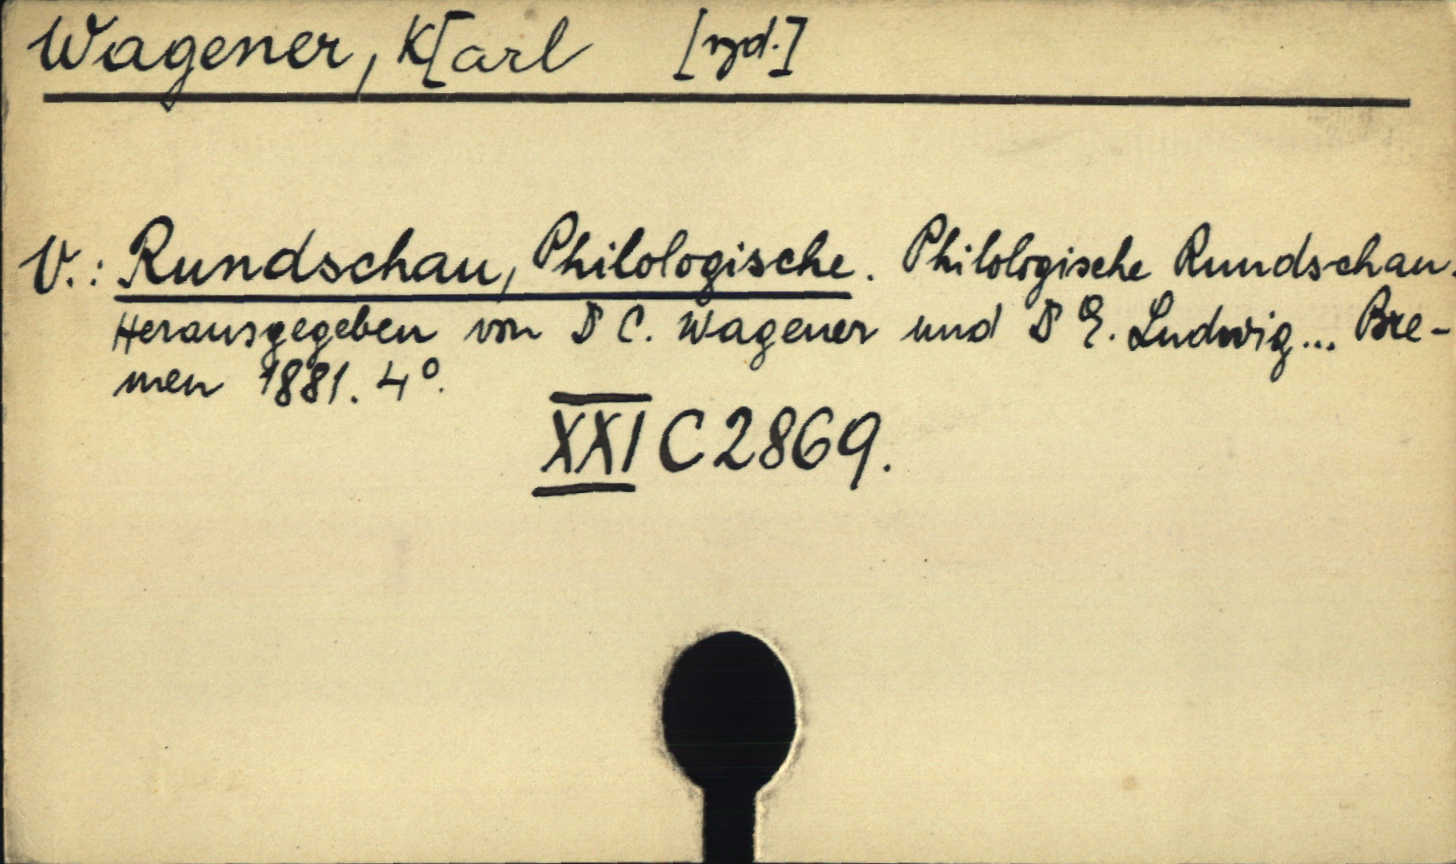 Wagener, K[arl [izd.]
V.: Rundschau, Philologische. Philologische Rundschau.
Herausgegeben von Dr C. Wagener und Dr E. Ludwig... Bre-
men 1881. 4°.
XXI C 2869.